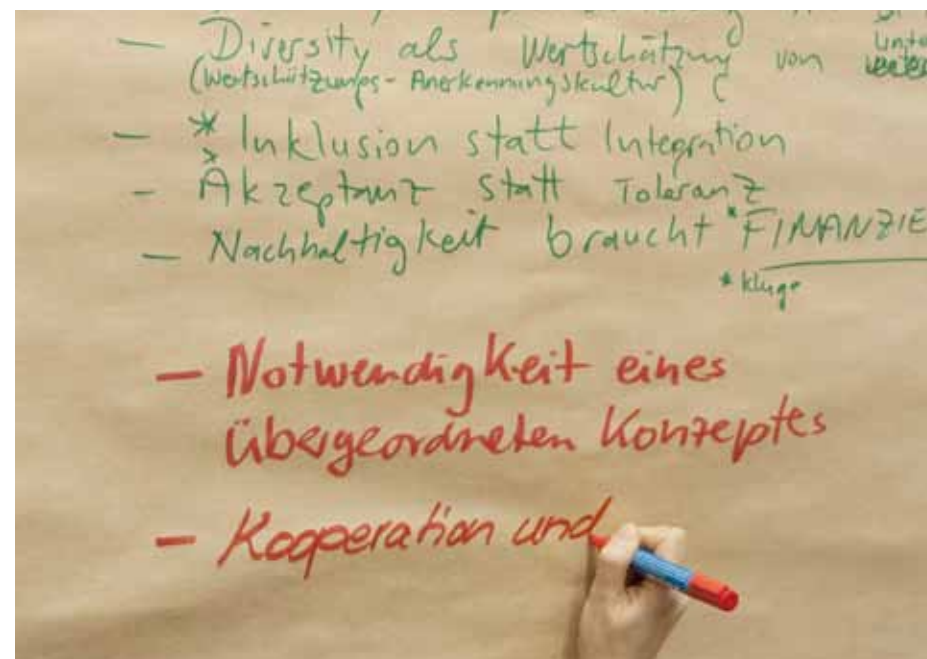 – Diversity als Wertschätzung von
(Wertschätzungs- Anerkennungskultur)
– * Inklusion statt Integration
– Akzeptanz statt Toleranz
– Nachhaltigkeit braucht * FINANZIE
* kluge
– Notwendigkeit eines
übergeordneten Konzeptes
– Kooperation und